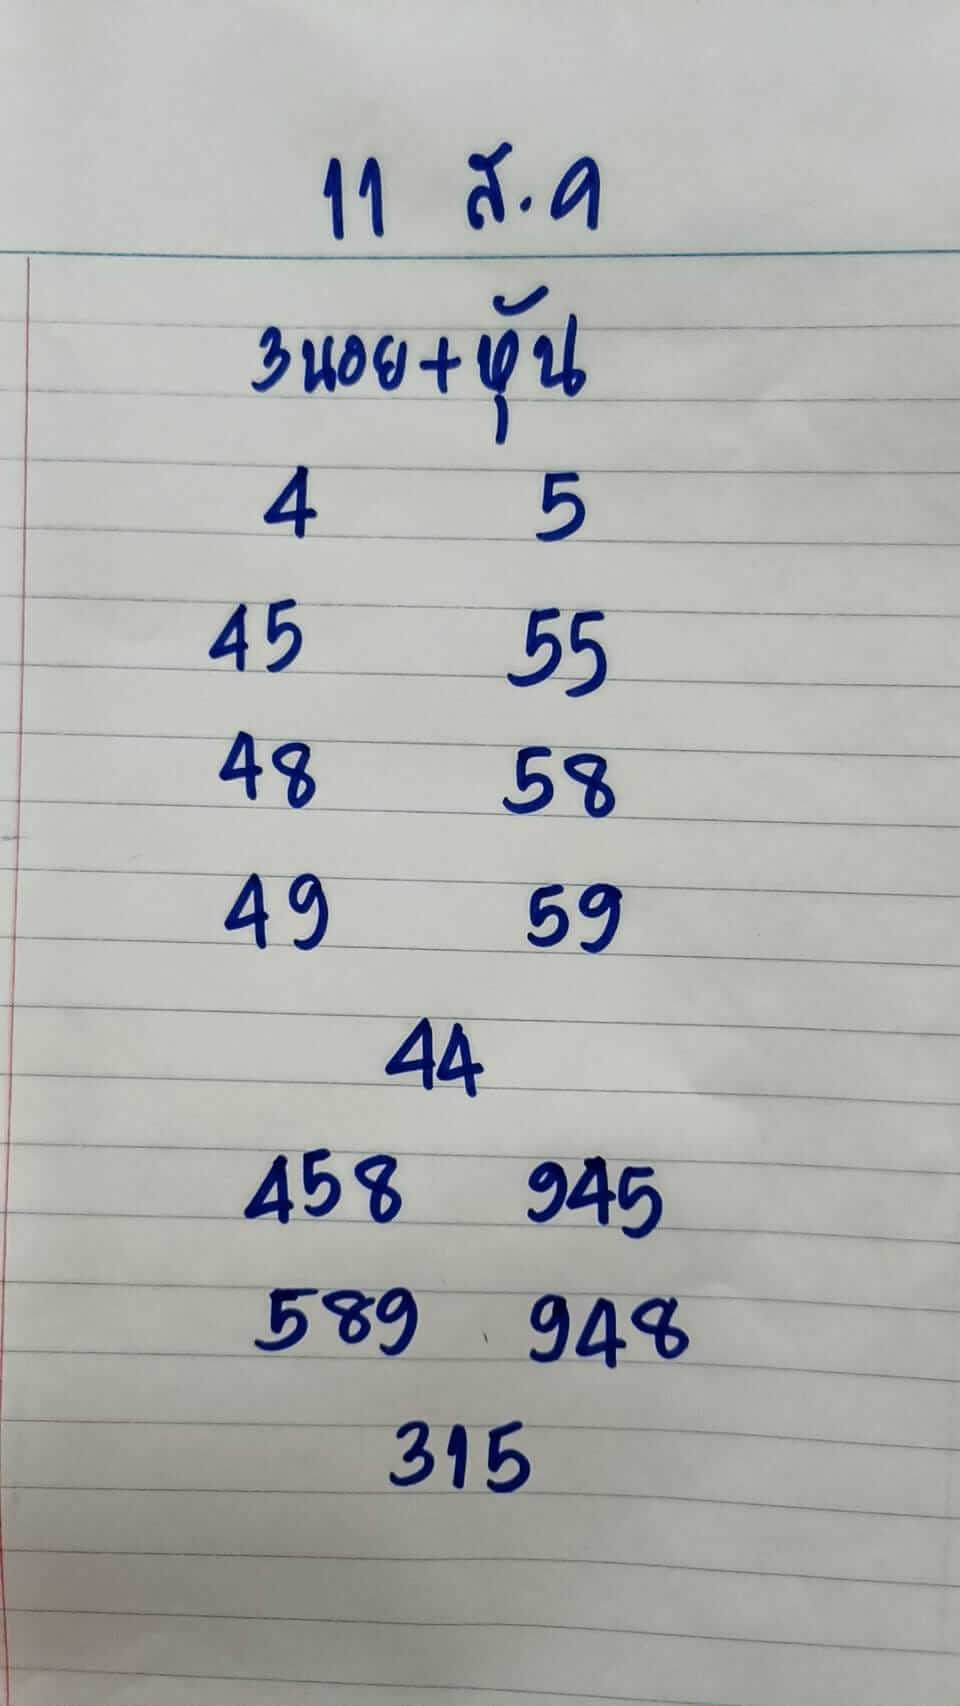 11 ส.ค
3นอย+หุ้น
4 5
45 55
48 58
49 59
44
458 945
589 948
315